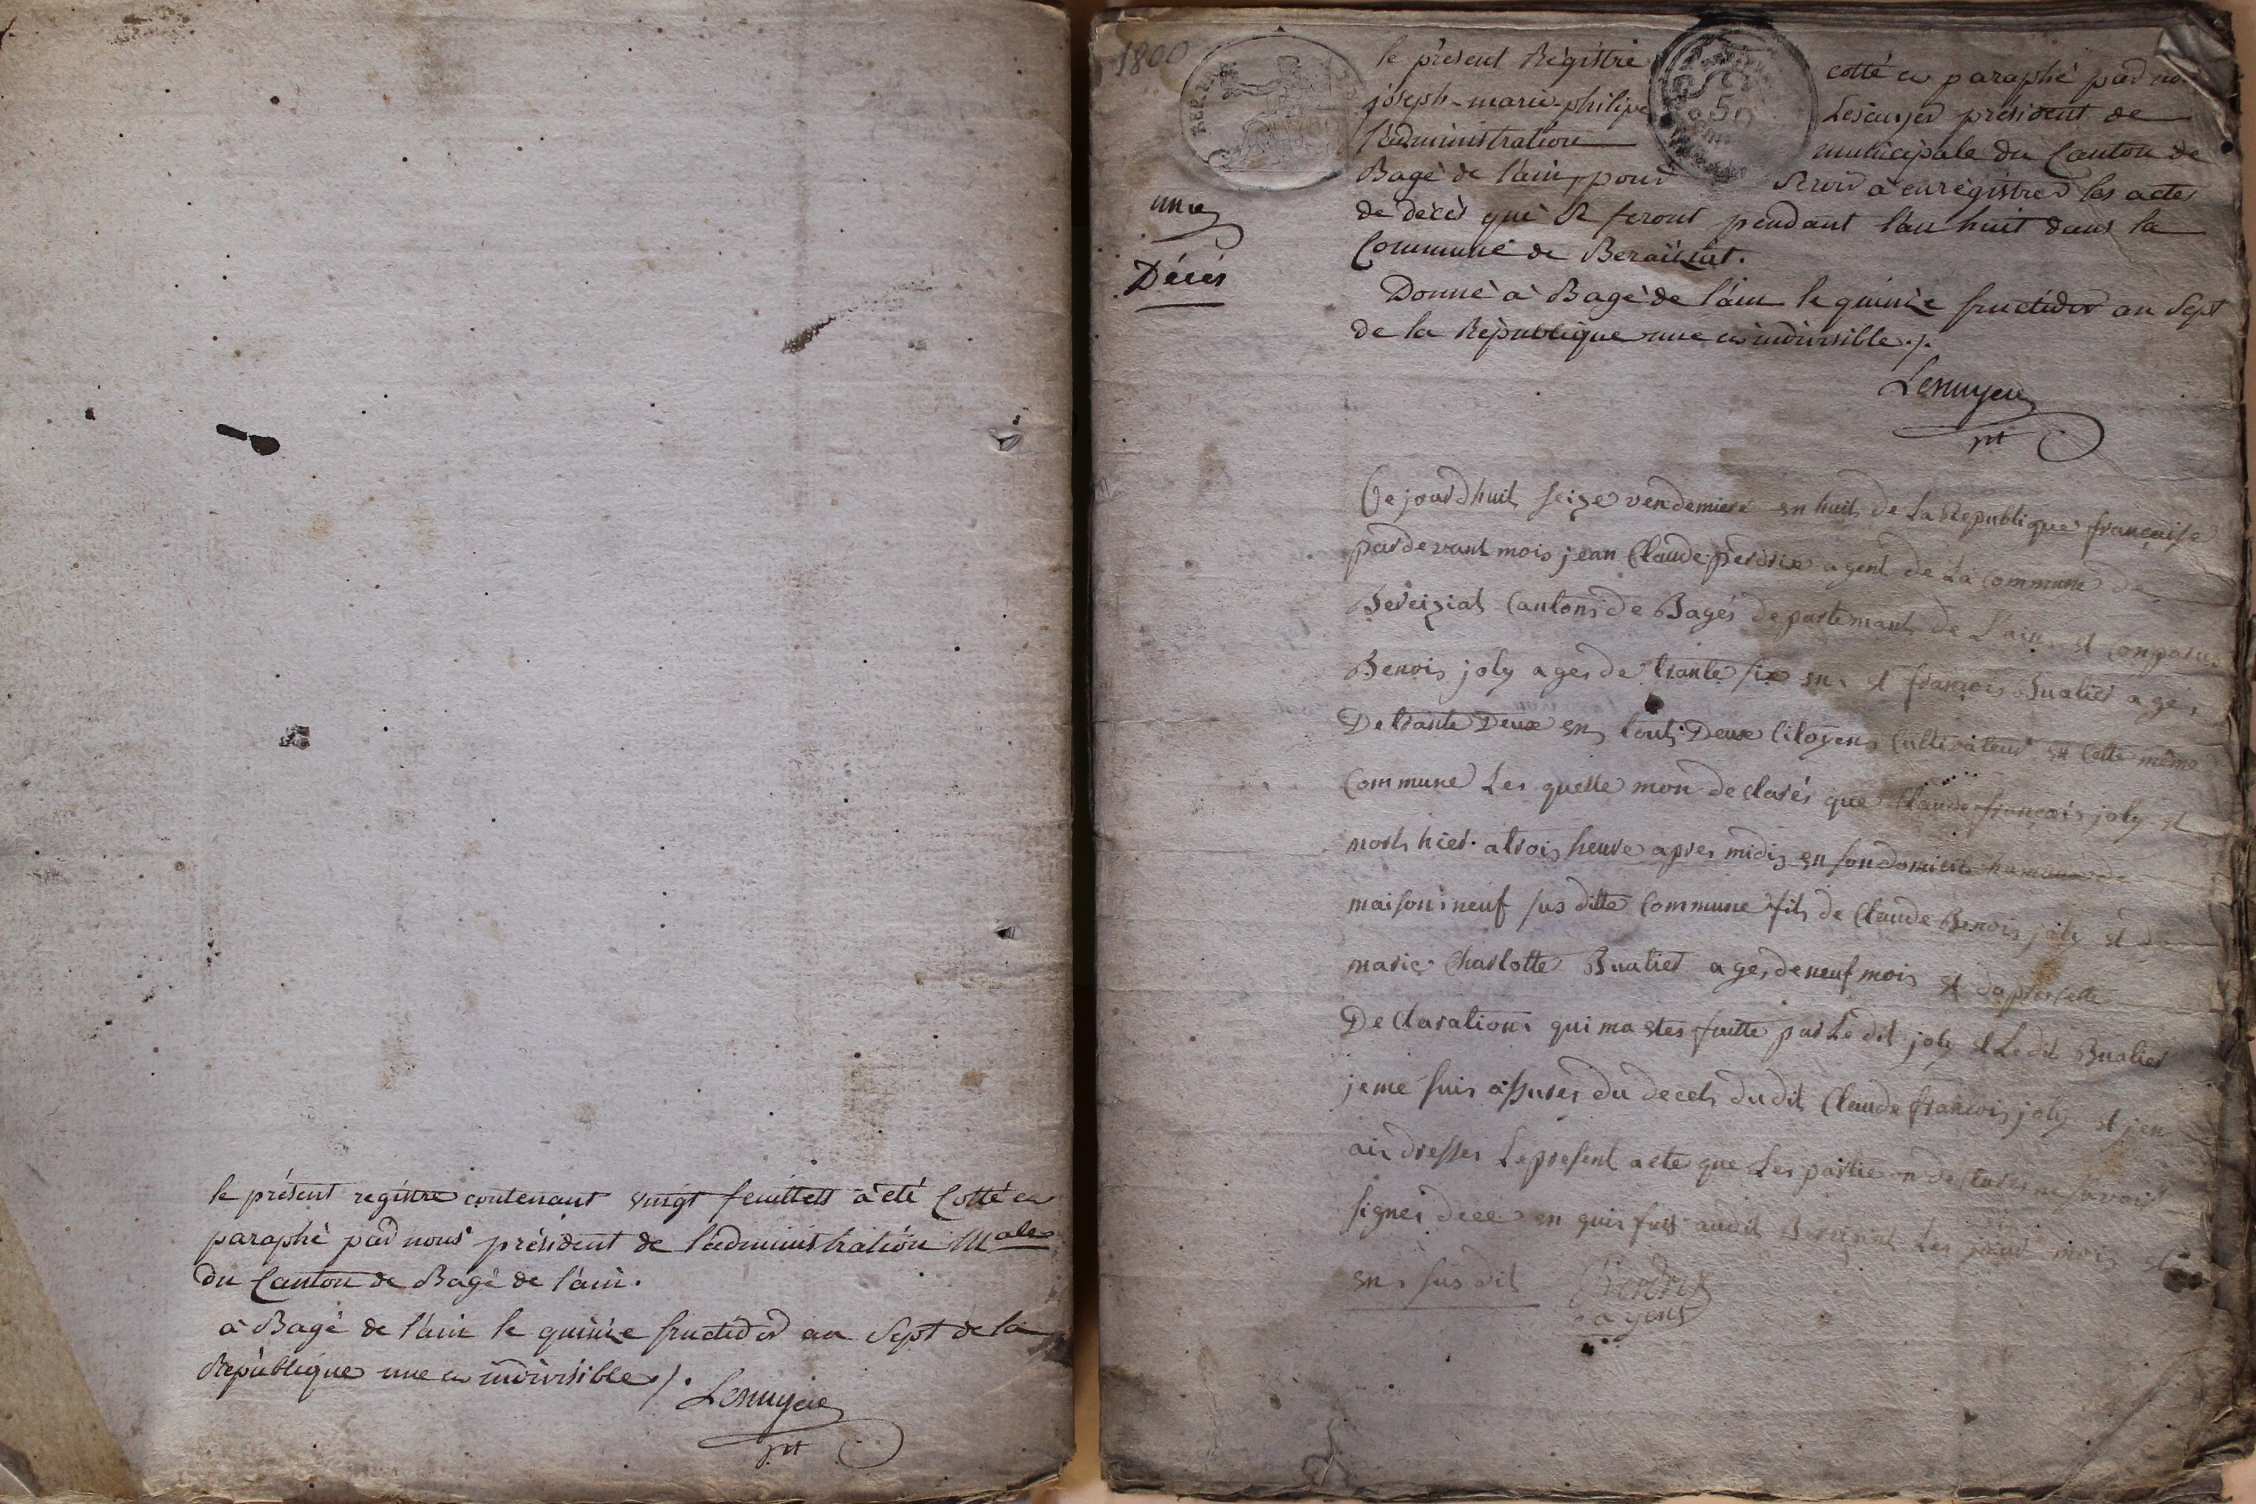 le présent registre contenant vingt feuillets à été Cotté et
paraphé par nous président de l'administration Male
du Canton de Bagé de l'ain.
à Bagé de l'ain le quinze fructidor an Sept de la
République une et indivisible ./.
Lescuyer
pdt
1800
REP. FRA
50
le présent Régistre cotté et paraphé par nous
joseph-marie-philipe Lescuyer président de
l'administration municipale du Canton de
Bagé de l'ain, pour servir à enrégistrer les actes
de décès qui se feront pendant l'an huit dans la
Commune de Beraiziat.
Donné à Bagé de l'ain le quinze fructidor an Sept
de la République une et indivisible ./.
Lescuyer
pdt
une
Décés
Ce jourdhuit seize vendemiere en huit de La Republique française
pardevant mois jean Claude perdrix agent de La Commune de
Bereiziat Cantons de Bagés departemant de L'ain et Conparus
Benois joly ages de trante six en et françois Bualier ages
De trante Deux en touts Deux Citoyens Cultivateur en Cette même
Commune Les quelle mon declarés que Claude françois joly et
morts hier a trois heure apres midis en son domicile hameau de
maisons neuf sus ditte Commune fils de Claude Benois joly et de
marie Charlotte Bualier ages de neuf mois et dapres cette
Declarations qui ma etes faitte par Le dit joly et Le dit Bualier
je me suis assures du decets du dit Claude francois joly et jen
ais dresses Le present acte que Les partie on declares ne savoir
signer deee en quis fait audit Bereiziat Les jour mois et
ens sus dit
Perdrix
agent